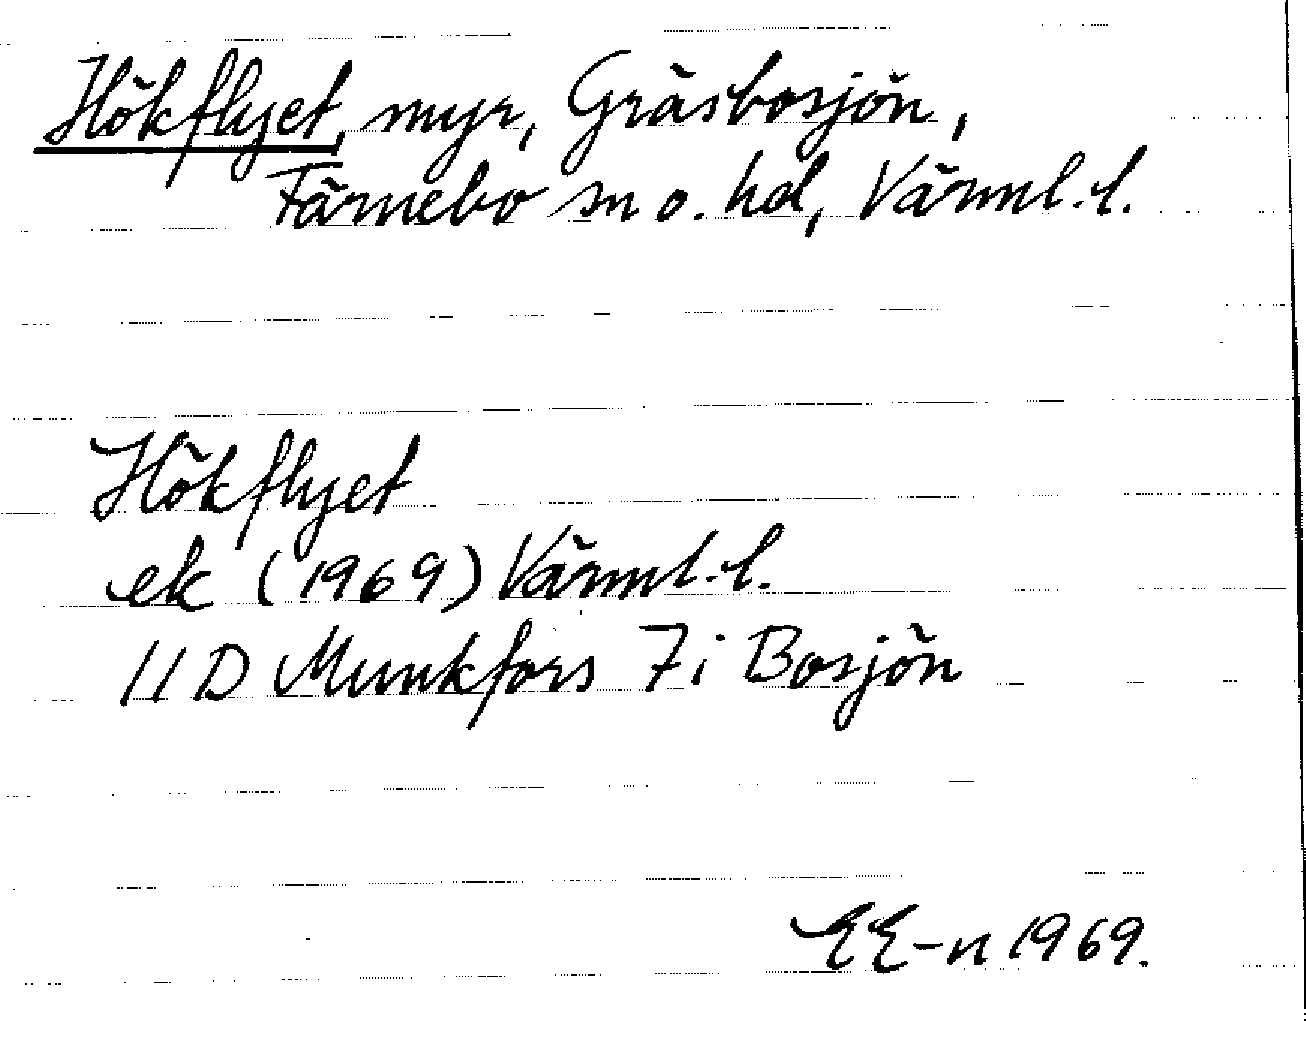 Hökflyet, myr, Gräsbosjön,
Färnebo sn o. hd, Värml. l.
Hökflyet
ek (1969) Värml. l.
11 D Munkfors 7 i Bosjön
EE-n 1969.